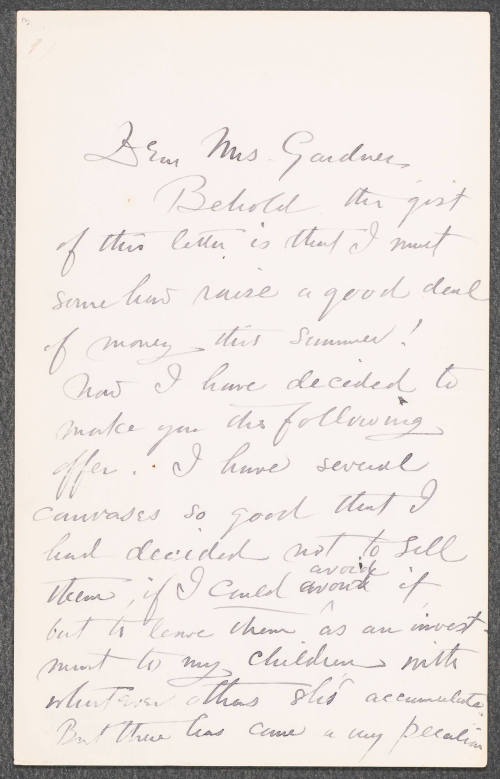 Dear Mrs. Gardner,
Behold the gist
of this letter is that I must
some how raise a good deal
of money this summer!
Now I have decided to
make you the following
offer. I have several
canvases so good that I
had decided not to sell
avoid
them, if I could avoid it
but to leave them as an invest-
ment to my children with
whatever others sh'd accumulate.
But there has come a my peculiar